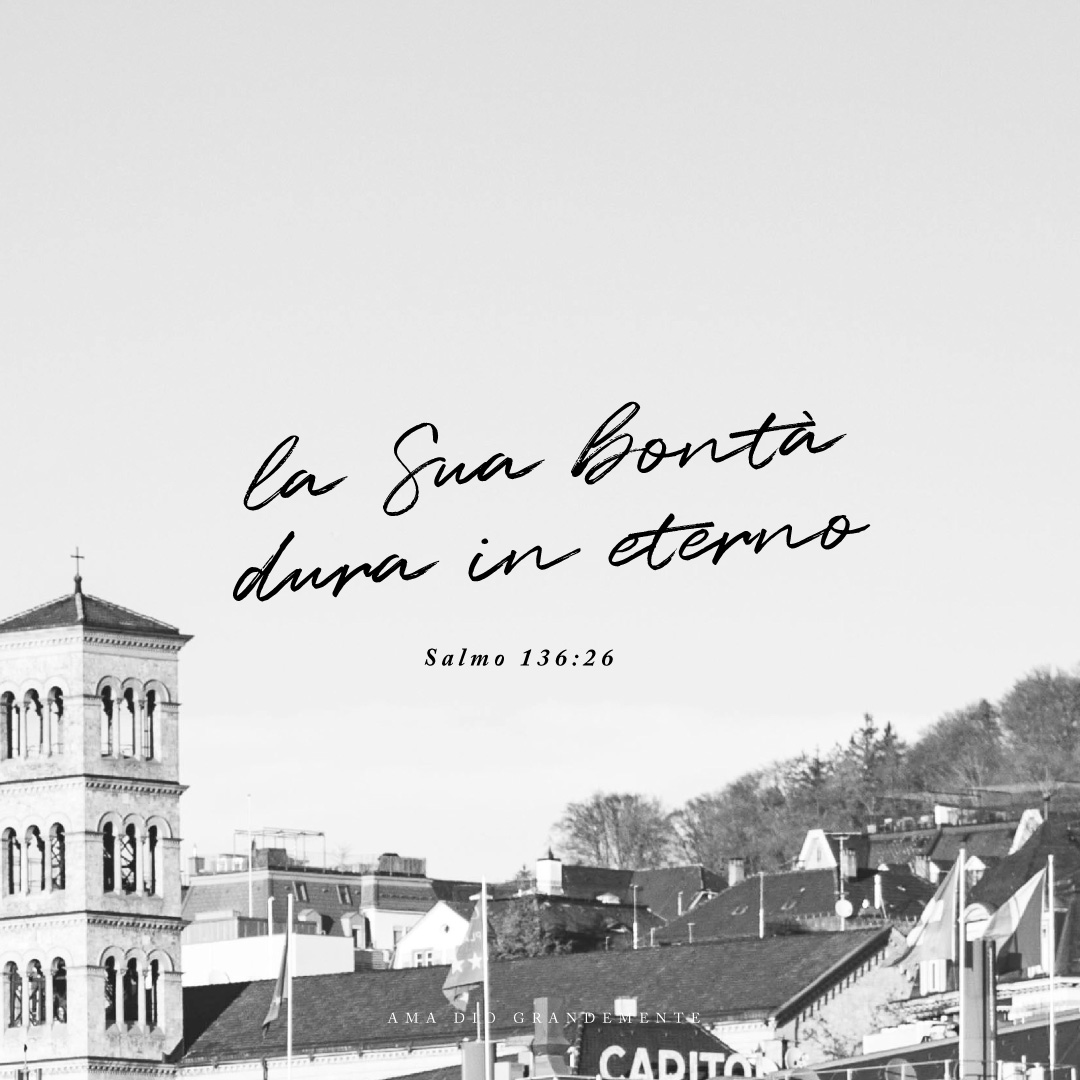 la Sua Bontà
dura in eterno
Salmo 136:26
AMA DIO GRANDEMENTE
CAPITO